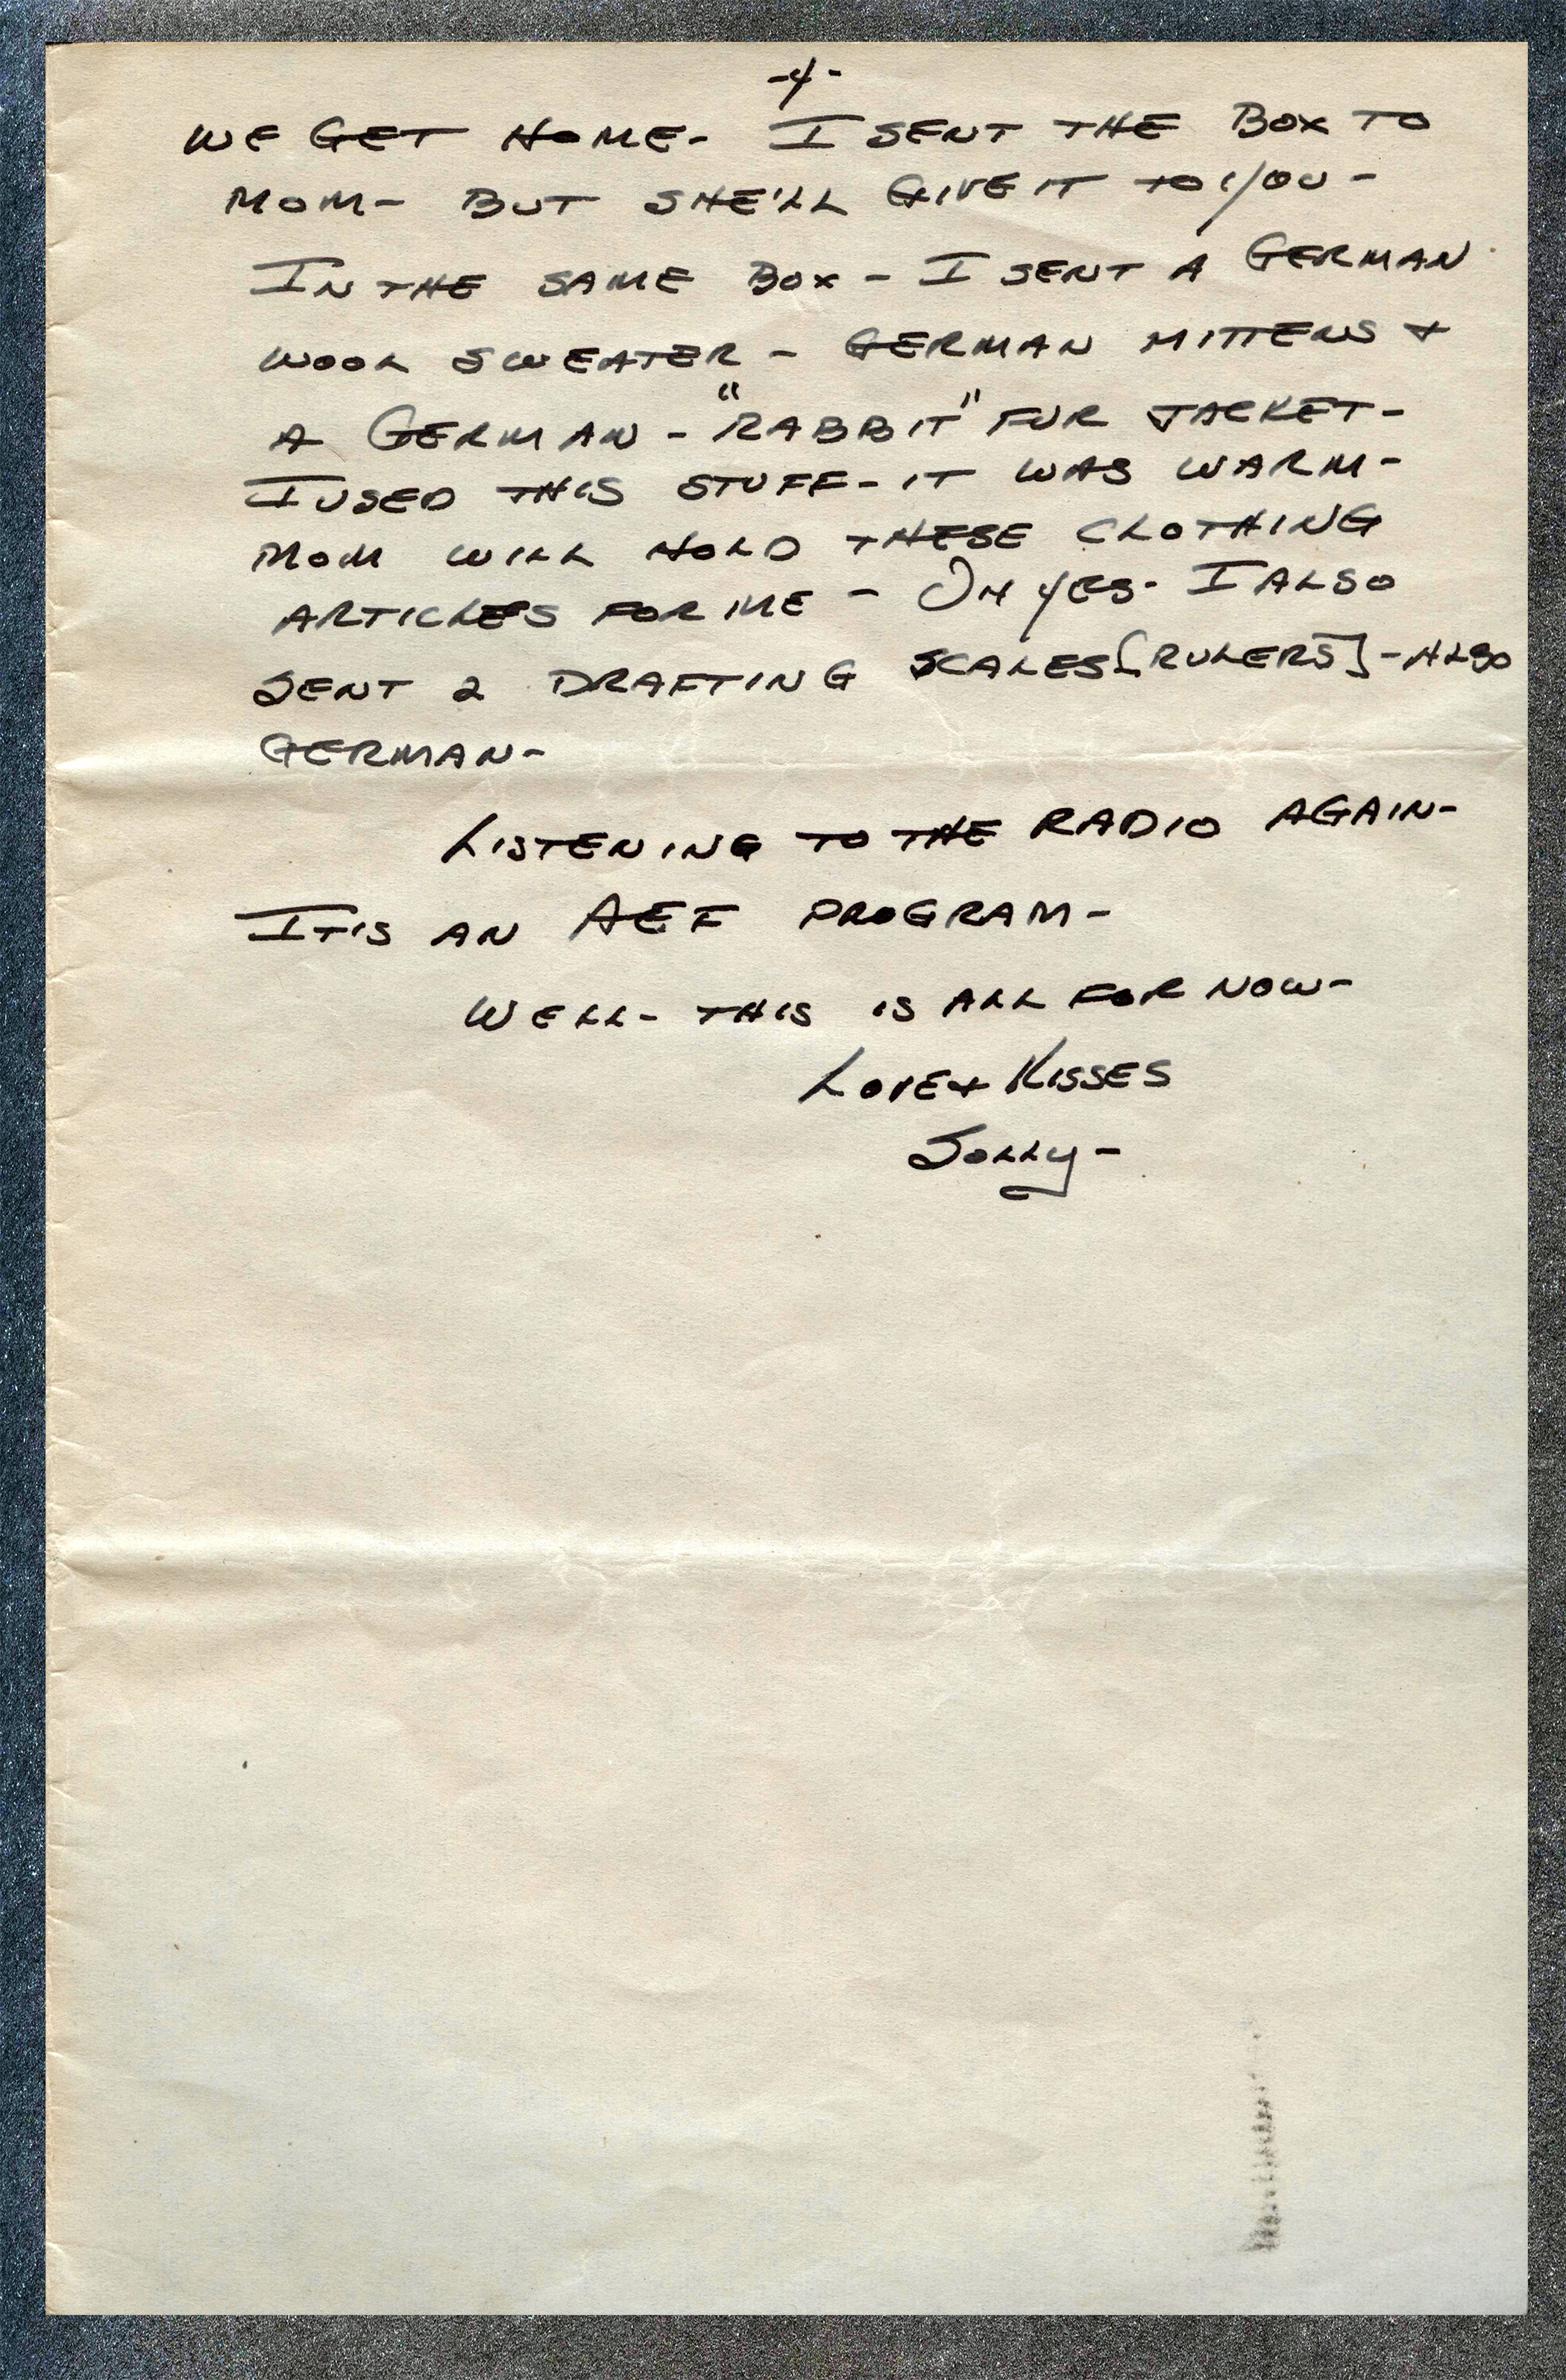 -4-
WE GET HOME- I SENT THE BOX TO
MOM- BUT SHE'LL GIVE IT TO YOU-
IN THE SAME BOX- I SENT A GERMAN
WOOL SWEATER- GERMAN MITTENS +
A GERMAN- "RABBIT" FUR JACKET-
I USED THIS STUFF- IT WAS WARM-
MOM WILL HOLD THESE CLOTHING
ARTICLES FOR ME- OH YES- I ALSO
SENT 2 DRAFTING SCALES [RULERS]- ALSO
GERMAN-
LISTENING TO THE RADIO AGAIN-
IT IS AN AEF PROGRAM-
WELL- THIS IS ALL FOR NOW-
LOVE + KISSES
JOLLY-